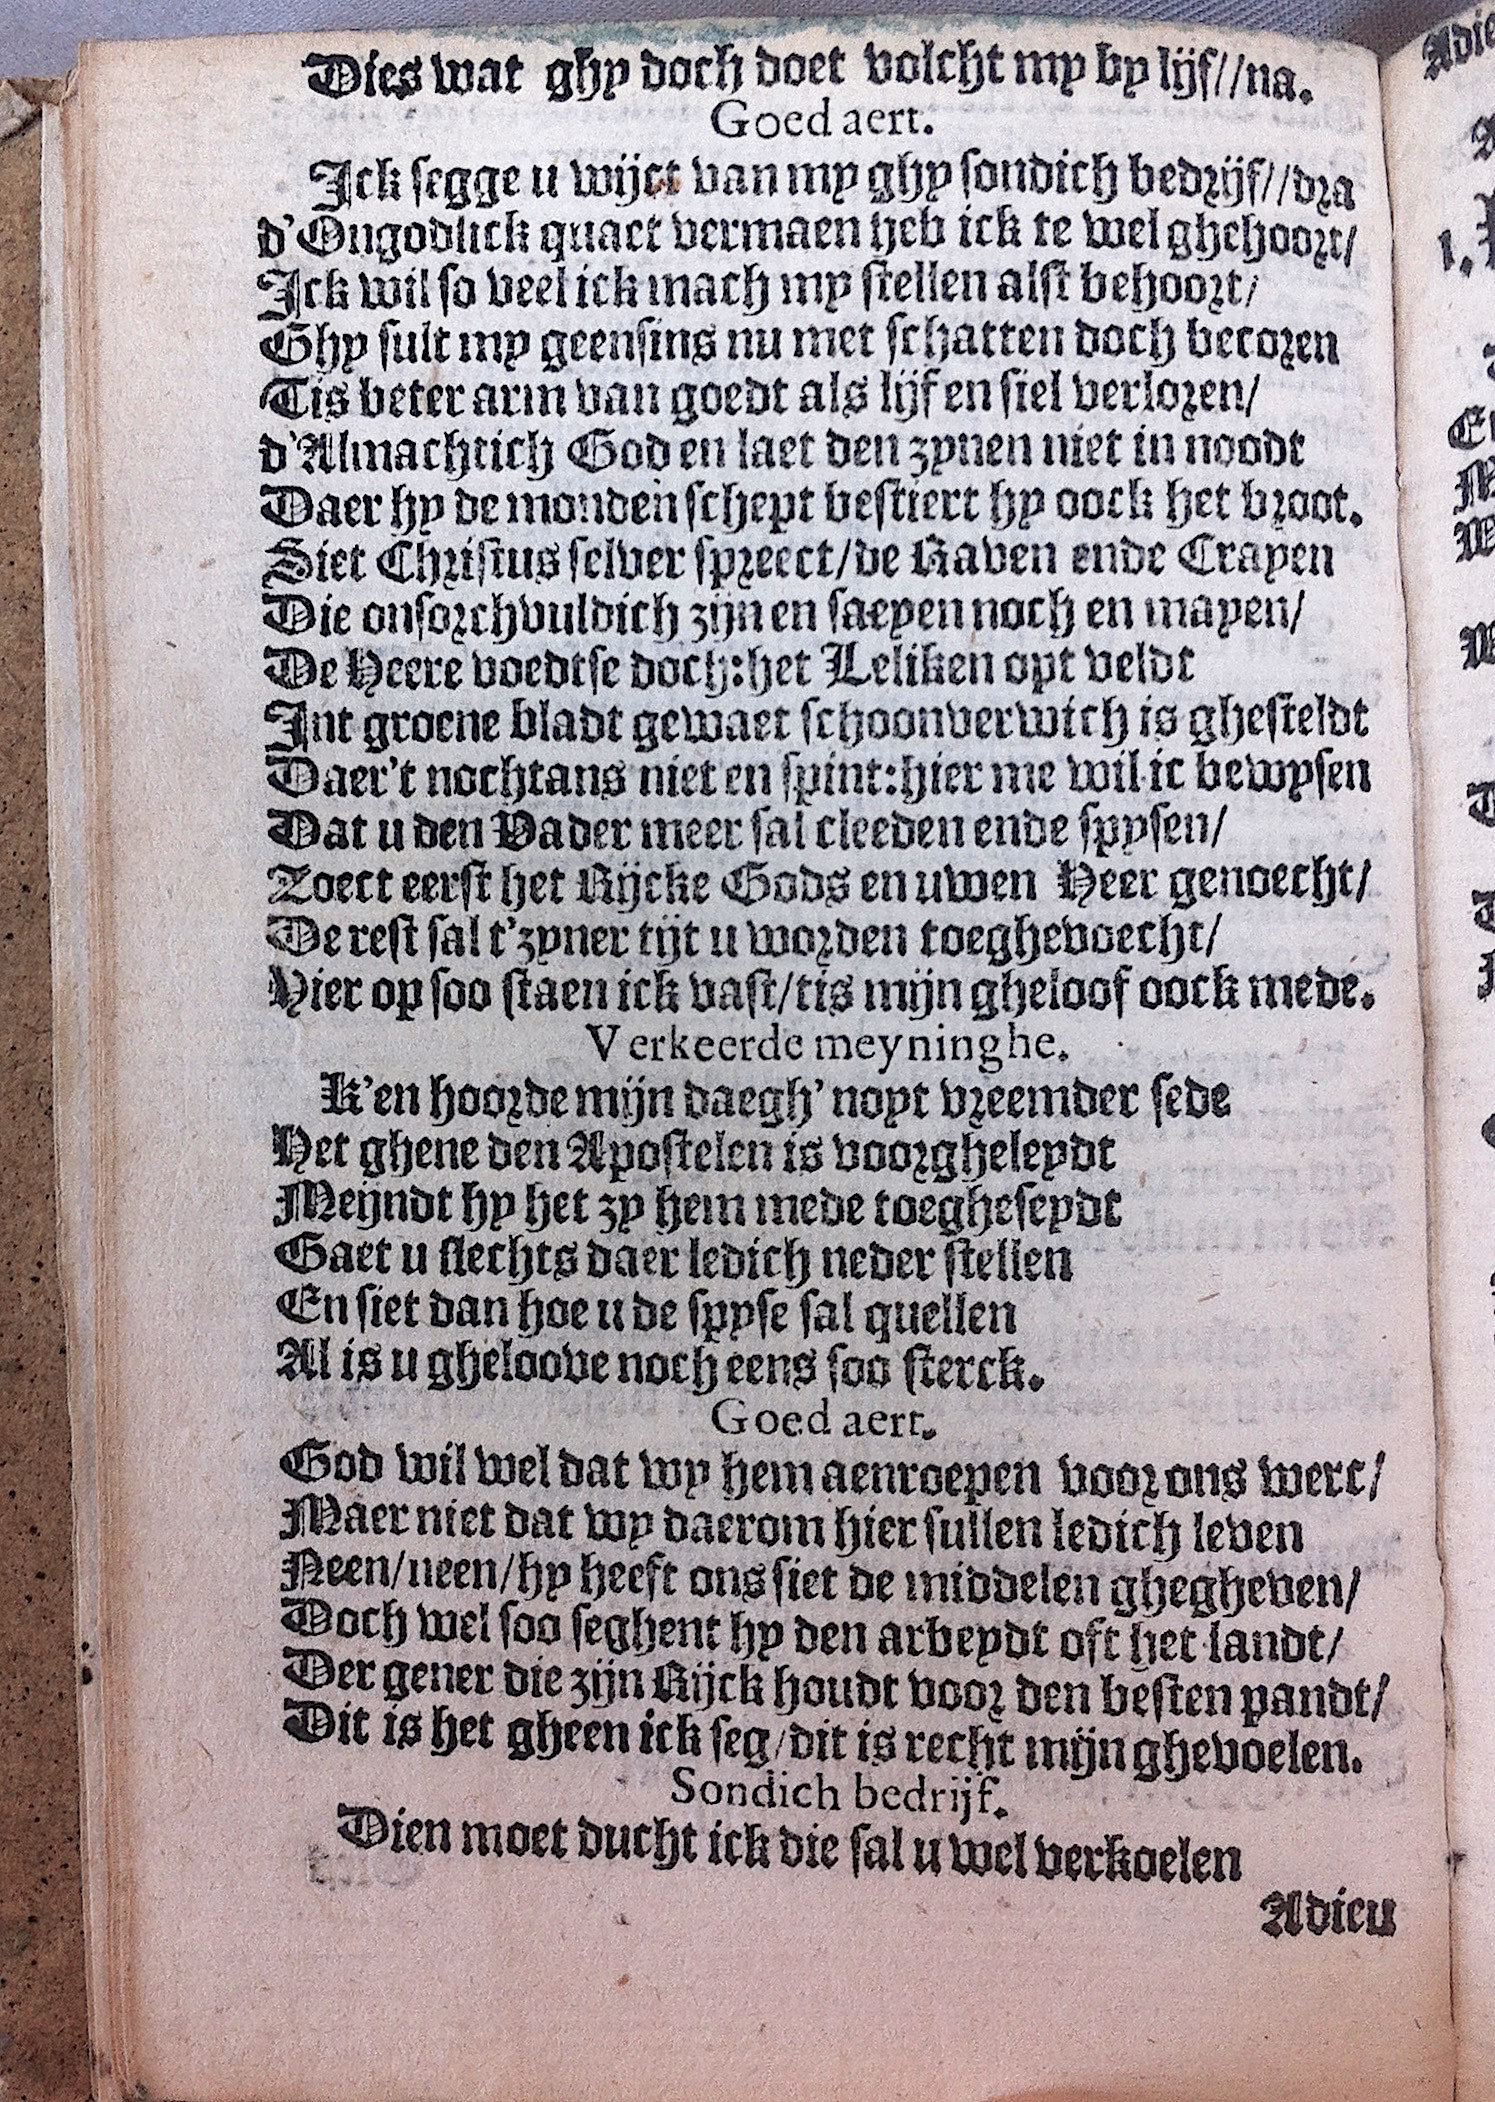 Dies wat ghy doch doet volcht my by lijf//na.
Goed aert.
Ick segge u wijct van my ghy sondich bedrijf//dra
d'Ongodlick quaet vermaen heb ick te wel ghehoort/
Ick wil so veel ick mach my stellen alst behoort/
Ghy sult my geensins nu met schatten doch becoren
Tis beter arm van goedt als lijf en siel verloren/
d'Almachtich God en laet den zynen niet in noodt
Daer hy de monden schept bestiert hy oock het broot.
Siet Christus selver spreect/de Raven ende Crayen
Die onsorchvuldich zijn en saeyen noch en mayen/
De Heere voedtse doch:het Leliken opt veldt
Int groene bladt gewaet schoonverwich is ghesteldt
Daer't nochtans niet en spint:hier me wil ic bewysen
Dat u den Vader meer sal cleeden ende spysen/
Zoect eerst het Rijcke Gods en uwen Heer genoecht/
De rest sal t'zyner tijt u worden toeghevoecht/
Hier op soo staen ick vast/tis mijn gheloof oock mede.
Verkeerde meyninghe.
K'en hoorde mijn daegh' noyt vreemder sede
Het ghene den Apostelen is voorgheleydt
Meijndt hy het zy hem mede toegheseydt
Gaet u slechts daer ledich neder stellen
En siet dan hoe u de spyse sal quellen
Al is u gheloove noch eens soo sterck.
Goed aert.
God wil wel dat wy hem aenroepen voor ons werc/
Maer niet dat wy daerom hier sullen ledich leven
Neen/neen/hy heeft ons siet de middelen ghegheven/
Doch wel soo seghent hy den arbeydt oft het landt/
Der gener die zijn Rijck houdt voor den besten pandt/
Dit is het gheen ick seg/dit is recht mijn ghevoelen.
Sondich bedrijf.
Dien moet ducht ick die sal u wel verkoelen
Adieu